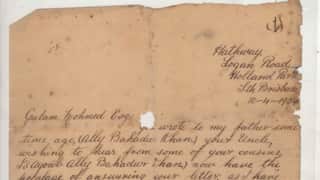 Hathway,
Logan Road
Holland Park
Sth Brisbane
Gulam Hohmed Esq;
wrote to my father some
time ago, (Ally Bahadur Khan,) your Uncle,
wishing to hear from some of your cousins,
I (Ally Bahadur Khan,) now have the
of answering your letter, as I have